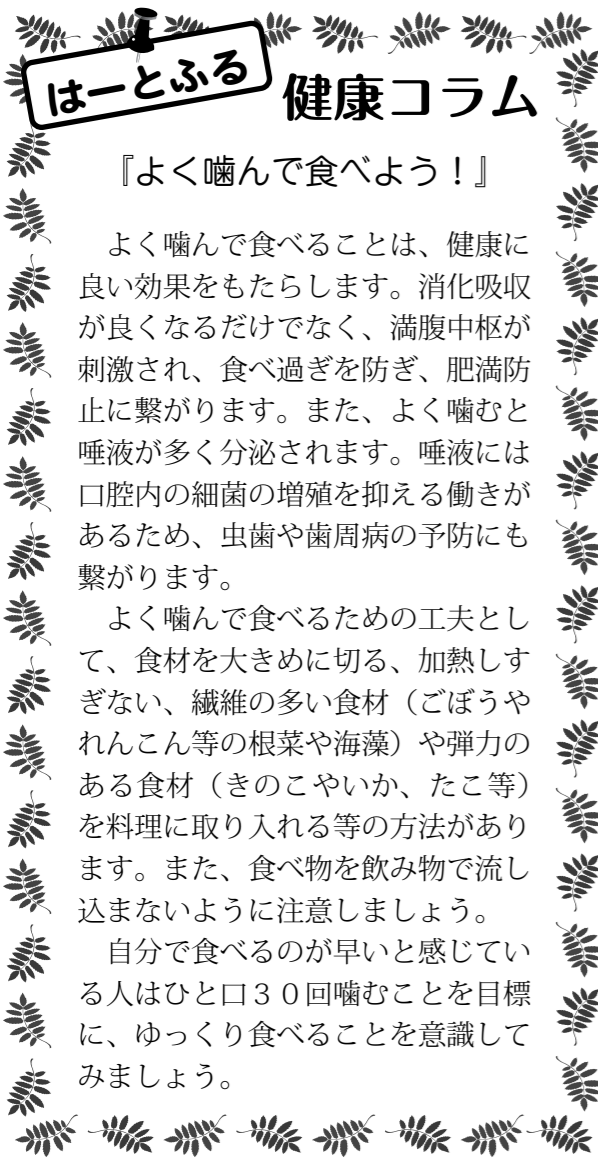 はーとふる
健康コラム
『よく噛んで食べよう！』
　よく噛んで食べることは、健康に
良い効果をもたらします。消化吸収
が良くなるだけでなく、満腹中枢が
刺激され、食べ過ぎを防ぎ、肥満防
止に繋がります。また、よく噛むと
唾液が多く分泌されます。唾液には
口腔内の細菌の増殖を抑える働きが
あるため、虫歯や歯周病の予防にも
繋がります。
　よく噛んで食べるための工夫とし
て、食材を大きめに切る、加熱しす
ぎない、繊維の多い食材（ごぼうや
れんこん等の根菜や海藻）や弾力の
ある食材（きのこやいか、たこ等）
を料理に取り入れる等の方法があり
ます。また、食べ物を飲み物で流し
込まないように注意しましょう。
　自分で食べるのが早いと感じてい
る人はひと口３０回噛むことを目標
に、ゆっくり食べることを意識して
みましょう。